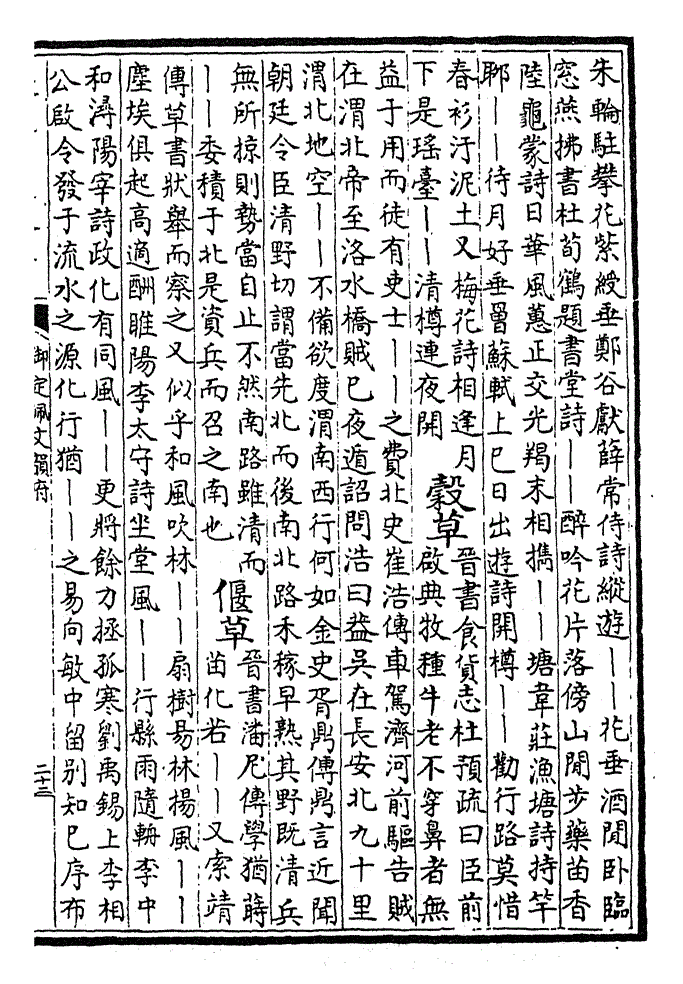 朱輪駐攀花紫綬垂鄭谷獻薛常侍詩縱遊丨丨花垂酒閒卧臨
窓燕拂書杜荀鶴題書堂詩丨丨醉吟花片落傍山閒步藥苗香
陸龜蒙詩日華風蕙正交光羯末相擕丨丨塘韋莊漁塘詩持竿
聊丨丨待月好垂罾蘇軾上巳日出遊詩開樽丨丨勸行路莫惜
春衫汙泥土又梅花詩相逢月
下是瑤臺丨丨清樽連夜開
穀草
晉書食貨志杜預疏曰臣前
啟典牧種牛老不穿鼻者無
益于用而徒有吏士丨丨之費北史崔浩傳車駕濟河前驅告賊
在渭北帝至洛水橋賊已夜遁詔問浩曰葢吳在長安北九十里
渭北地空丨丨不備欲度渭南西行何如金史胥鼎傳鼎言近聞
朝廷令臣清野切謂當先北而後南北路禾稼早熟其野既清兵
無所掠則勢當自止不然南路雖清而
丨丨委積于北是資兵而召之南也
偃草
晉書潘尼傳學猶蒔
苗化若丨丨又索靖
傳草書狀舉而察之又似乎和風吹林丨丨扇樹易林揚風丨丨
塵埃俱起高適酬睢陽李太守詩坐堂風丨丨行縣雨隨輈李中
和潯陽宰詩政化有同風丨丨更將餘力拯孤寒劉禹錫上李相
公啟令發于流水之源化行猶丨丨之易向敏中留別知已序布
御定佩文韻府
二十三